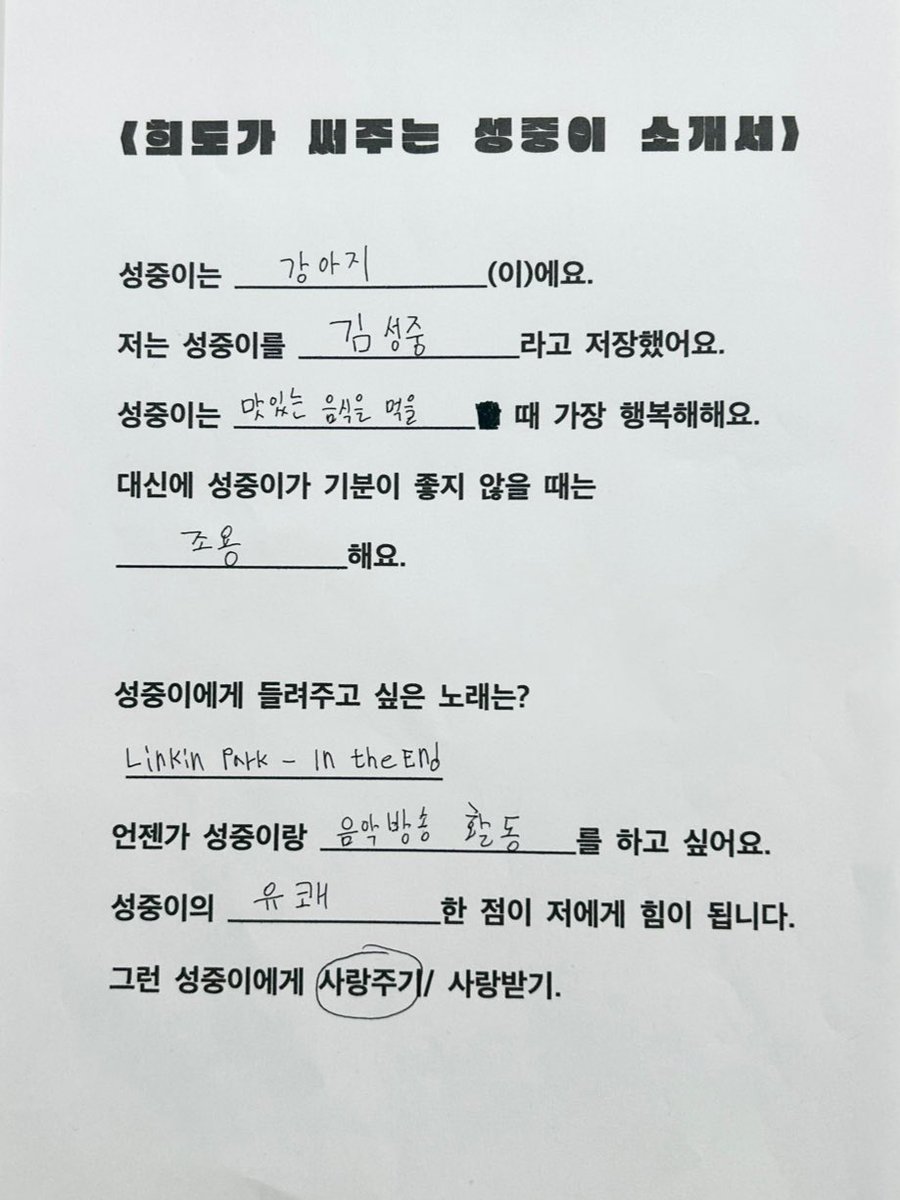 <희도가 써주는 성중이 소개서>
성중이는 강아지 (이)에요.
저는 성중이를 김성중 라고 저장했어요.
성중이는 맛있는 음식을 먹을 때 가장 행복해해요.
대신에 성중이가 기분이 좋지 않을 때는
조용 해요.
성중이에게 들려주고 싶은 노래는?
Linkin Park - In the End
언젠가 성중이랑 음악방송 활동 를 하고 싶어요.
성중이의 유쾌 한 점이 저에게 힘이 됩니다.
그런 성중이에게 사랑주기/ 사랑받기.